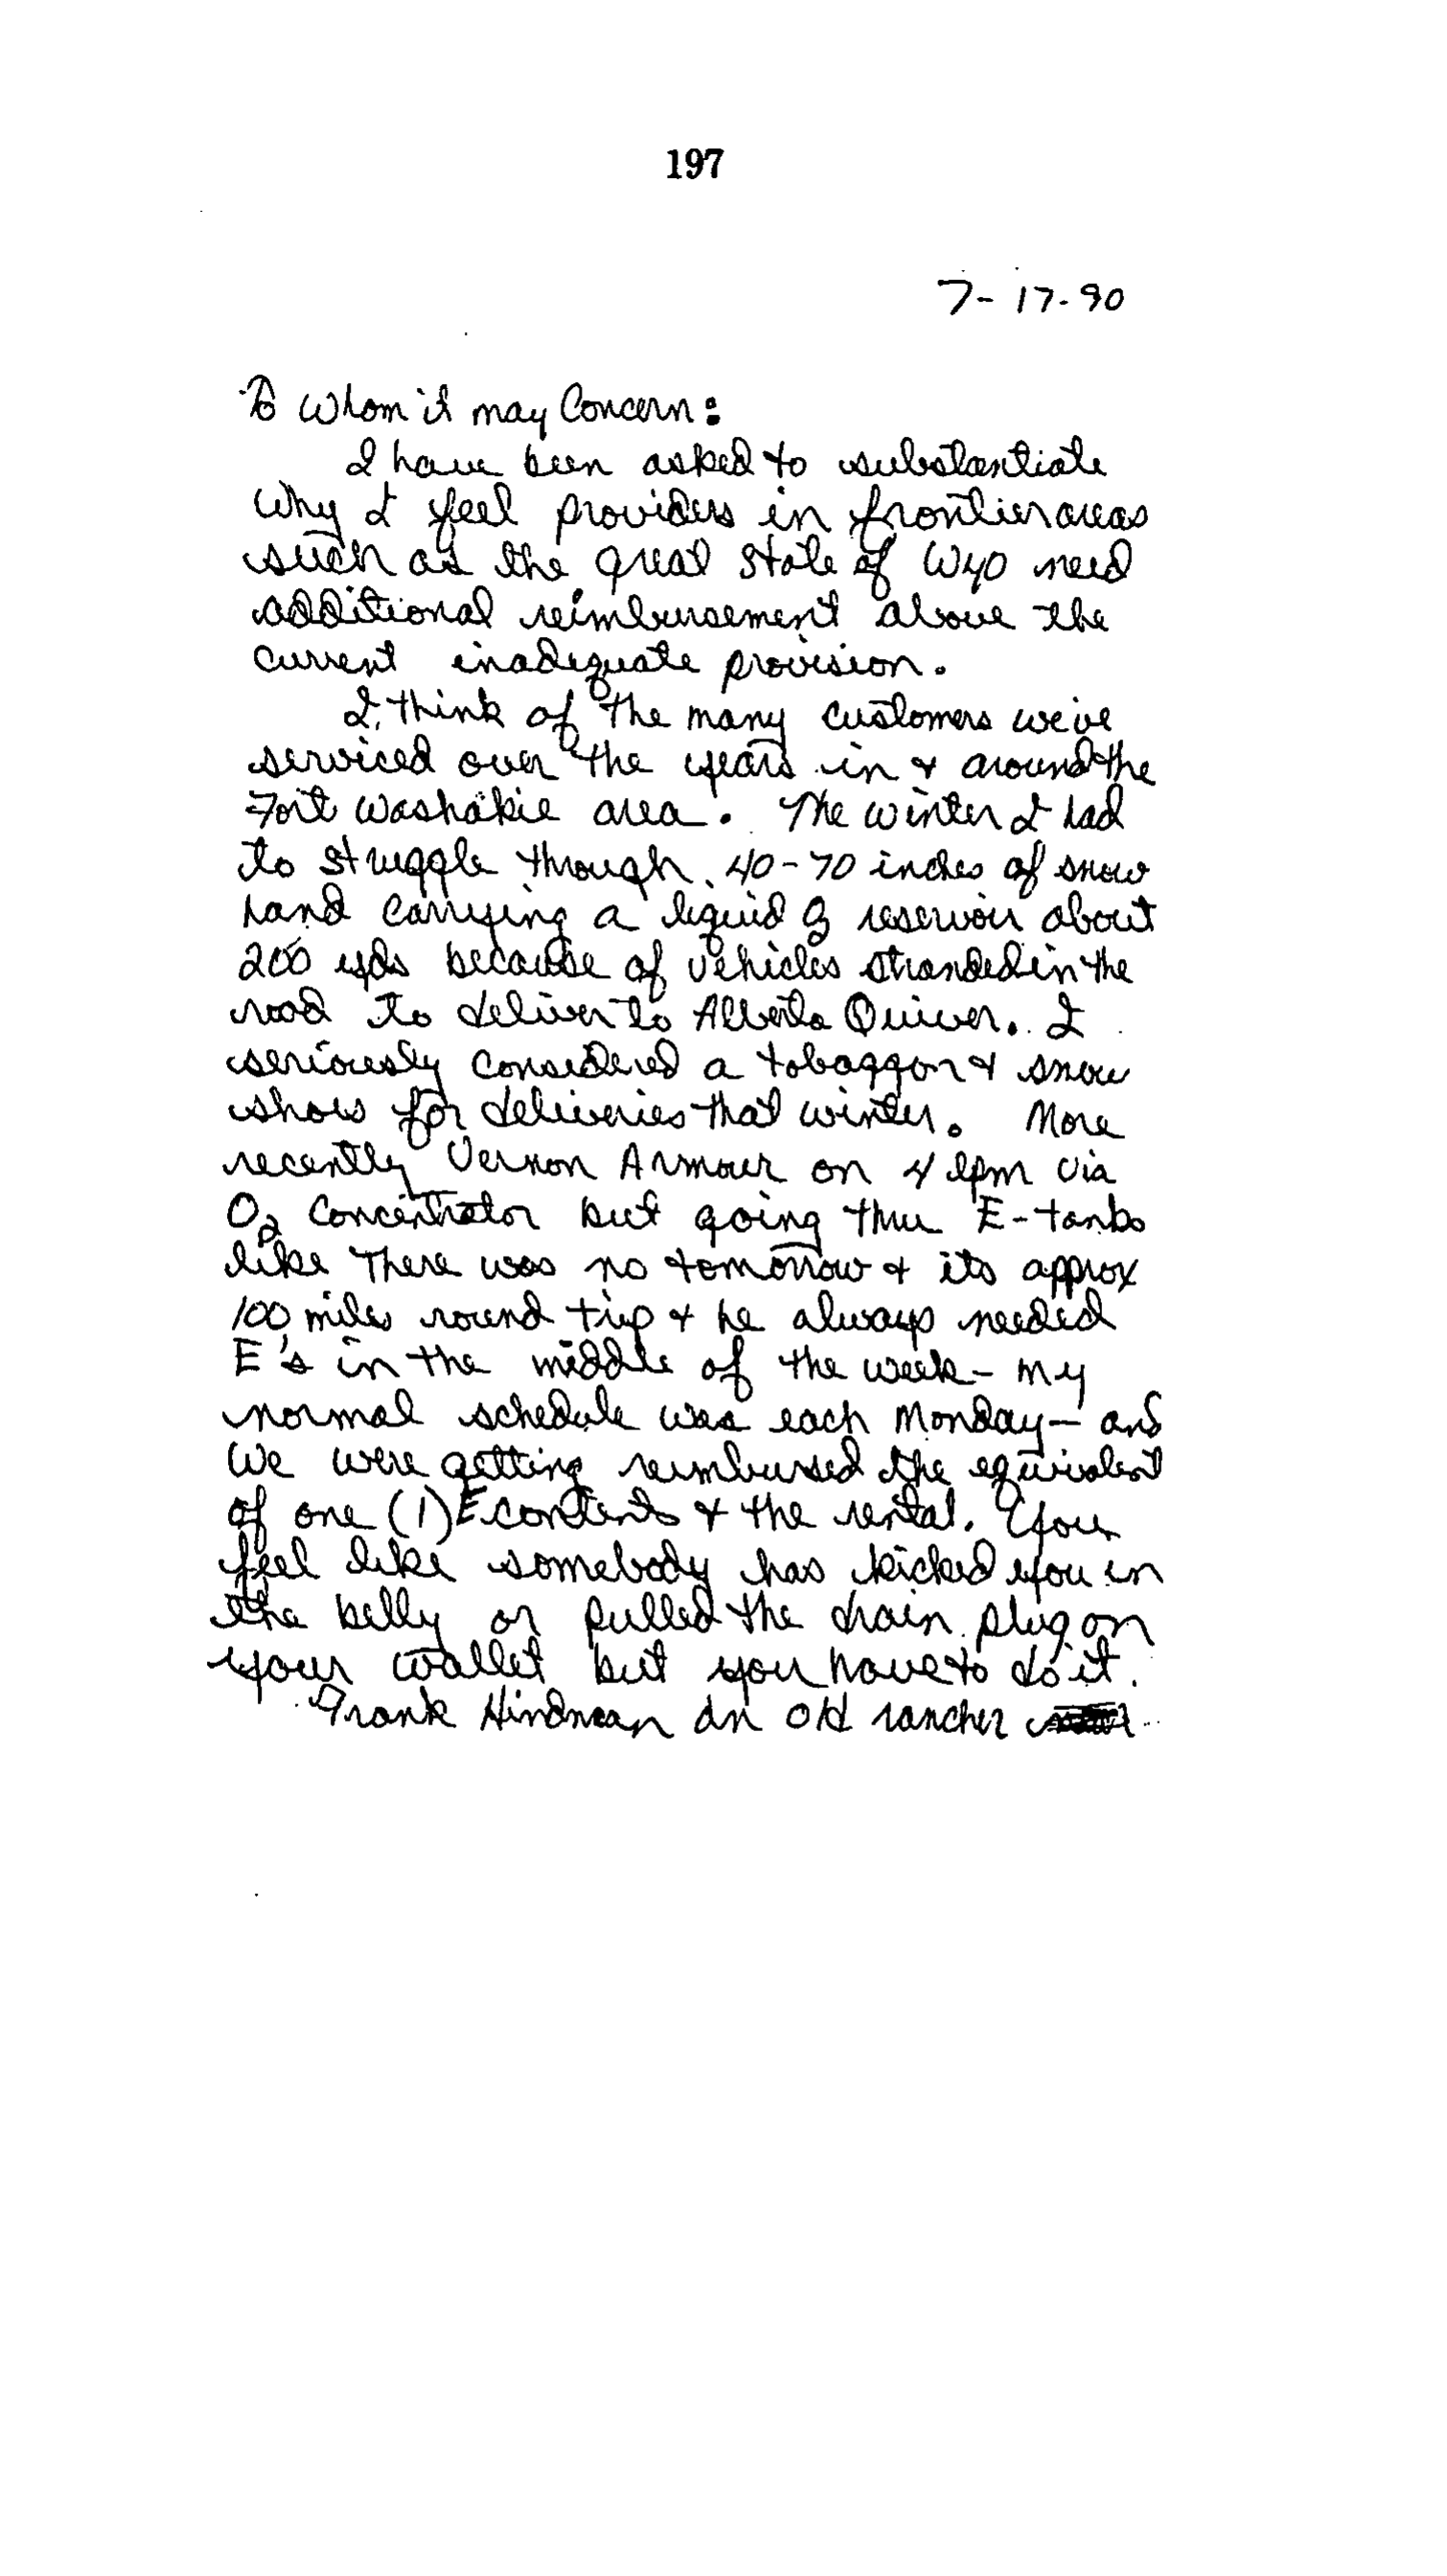 197
7-17-90
To Whom it may Concern:
I have been asked to substantiate
why I feel providers in frontier areas
such as the great State of Wyo need
additional reimbursement above the
current inadequate provision.
I think of the many customers we've
serviced over the years in & around the
Fort Washakie area. The winter I had
to struggle through 40-70 inches of snow
hand carrying a liquid O2 reservoir about
200 yds because of vehicles stranded in the
road to deliver to Alberta Quiver. I
seriously considered a tobaggon & snow
shoes for deliveries that winter. More
recently Vernon Armour on 4 lpm via
O2 Concentrator but going thru E-tanks
like there was no tomorrow & its approx
100 miles round trip & he always needed
E's in the middle of the week - my
normal schedule was each Monday - and
we were getting reimbursed the equivalent
of one (1) E contents & the rental. You
feel like somebody has kicked you in
the belly or pulled the drain plug on
your wallet but you have to do it.
Frank Hindman an old rancher